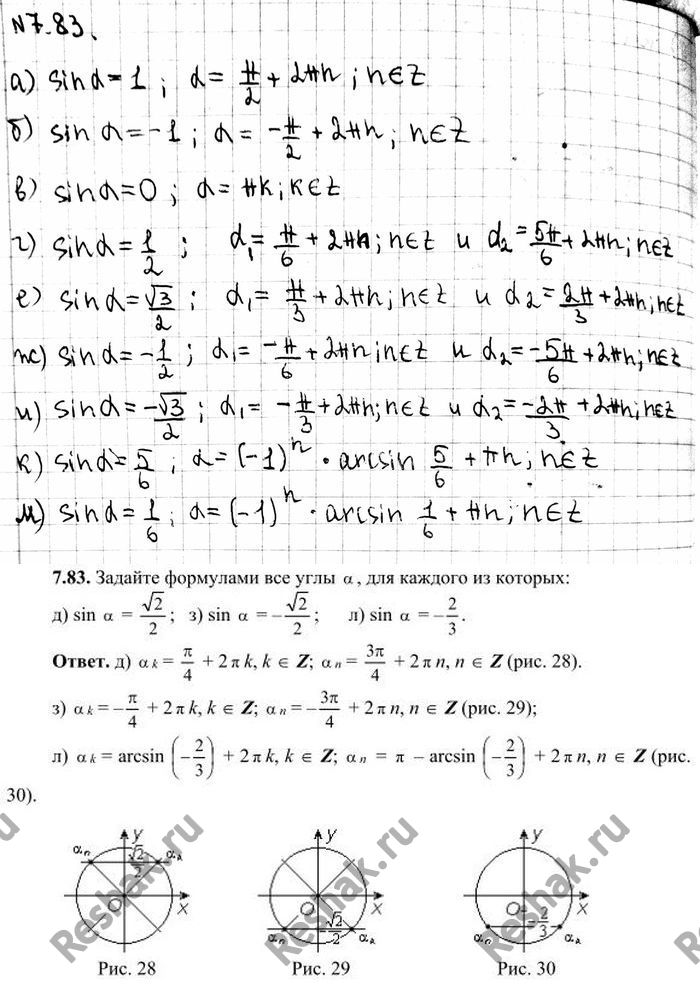 N7.83.
а) sin α = 1 ; α = π/2 + 2πn ; n ∈ Z
б) sin α = -1 ; α = -π/2 + 2πn ; n ∈ Z
в) sin α = 0 ; α = πk ; k ∈ Z
г) sin α = 1/2 ; α₁ = π/6 + 2πn ; n ∈ Z и α₂ = 5π/6 + 2πn ; n ∈ Z
е) sin α = √3/2 ; α₁ = π/3 + 2πn ; n ∈ Z и α₂ = 2π/3 + 2πn ; n ∈ Z
ж) sin α = -1/2 ; α₁ = -π/6 + 2πn ; n ∈ Z и α₂ = -5π/6 + 2πn ; n ∈ Z
и) sin α = -√3/2 ; α₁ = -π/3 + 2πn ; n ∈ Z и α₂ = -2π/3 + 2πn ; n ∈ Z
к) sin α = 5/6 ; α = (-1)ⁿ · arcsin 5/6 + πn ; n ∈ Z
м) sin α = 1/6 ; α = (-1)ⁿ · arcsin 1/6 + πn ; n ∈ Z
7.83. Задайте формулами все углы α , для каждого из которых:
д) sin α = √2/2 ; з) sin α = -√2/2 ; л) sin α = -2/3 .
Ответ. д) αk = π/4 + 2πk, k ∈ Z; αn = 3π/4 + 2πn, n ∈ Z (рис. 28).
з) αk = -π/4 + 2πk, k ∈ Z; αn = -3π/4 + 2πn, n ∈ Z (рис. 29);
л) αk = arcsin (-2/3) + 2πk, k ∈ Z; αn = π - arcsin (-2/3) + 2πn, n ∈ Z (рис.
30).
y y y
αn √2/2 αk
O x O x O x
αn -√2/2 αk αn -2/3 αk
Рис. 28 Рис. 29 Рис. 30
Reshak.ru Reshak.ru Reshak.ru